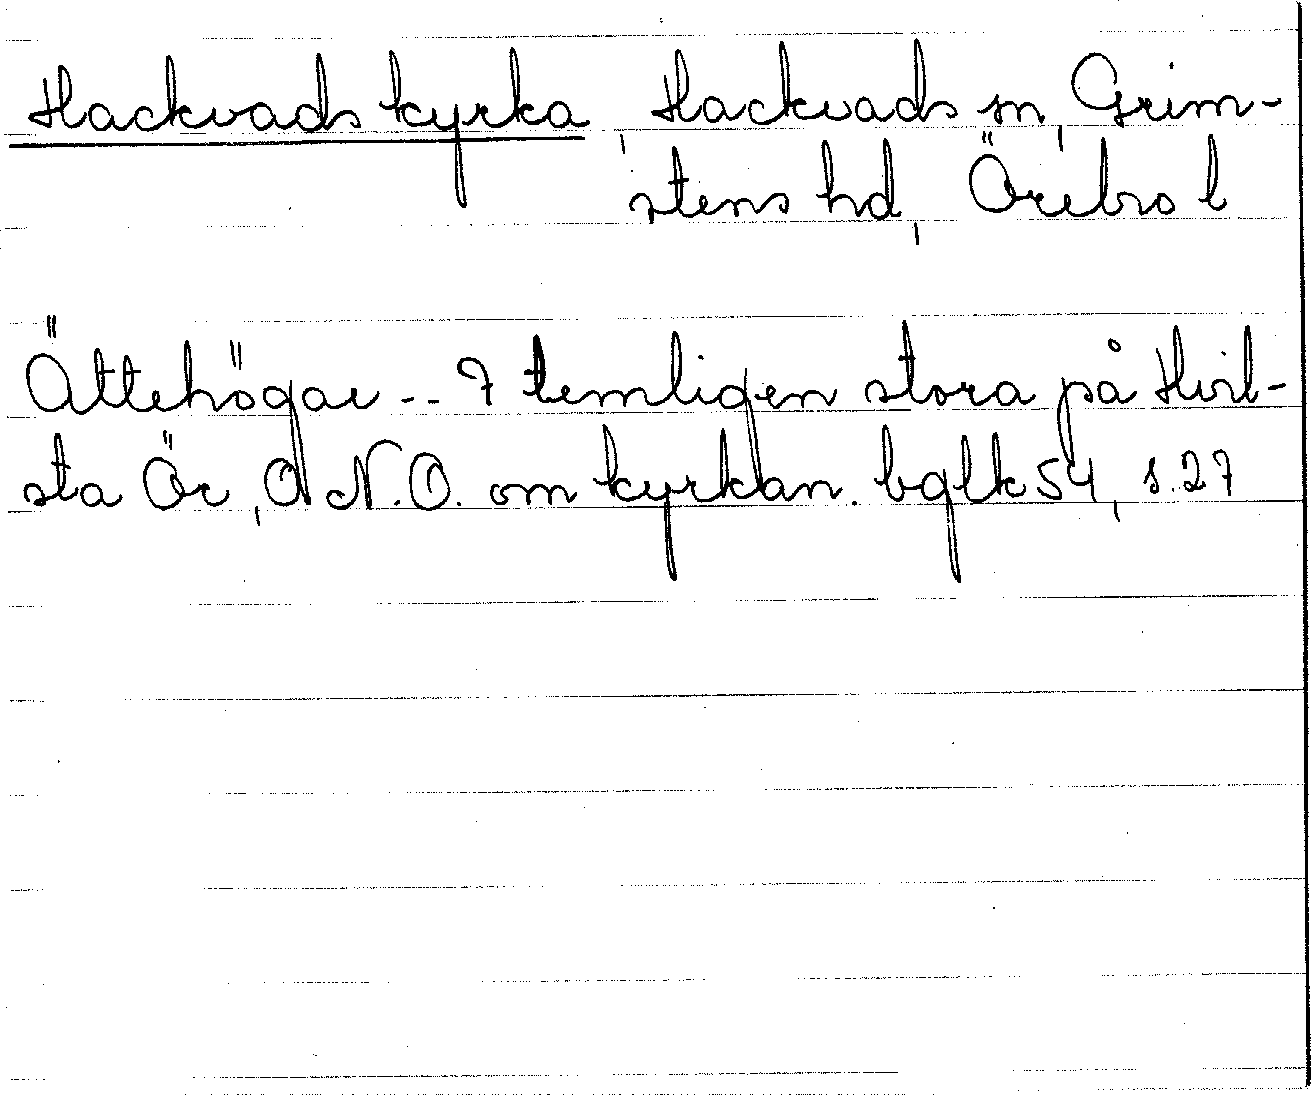 Hackvads kyrka, Hackvads sn, Grim-
stens hd, Örebro l
Ättehögar -- 7 temligen stora på Hvil-
sta Ör, O N.O. om kyrkan. bglk 54, s. 27